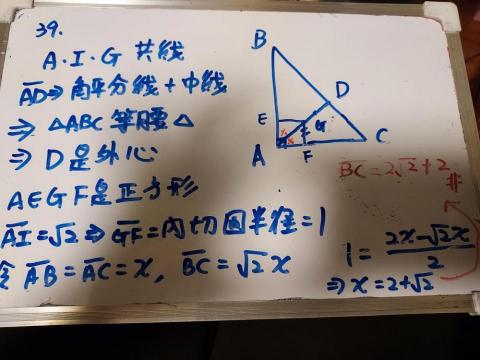 39.
A.I.G 共线
AD⇒角平分线+中线
⇒ △ABC 等腰△
⇒ D是外心
AEGF是正方形
AI=√2 ⇒ GF=内切圆半径=1
令 AB=AC=x, BC=√2x
B
D
E
G
A
F
C
BC=2√2+2
#
1=(2x-√2x)/2
⇒x=2+√2